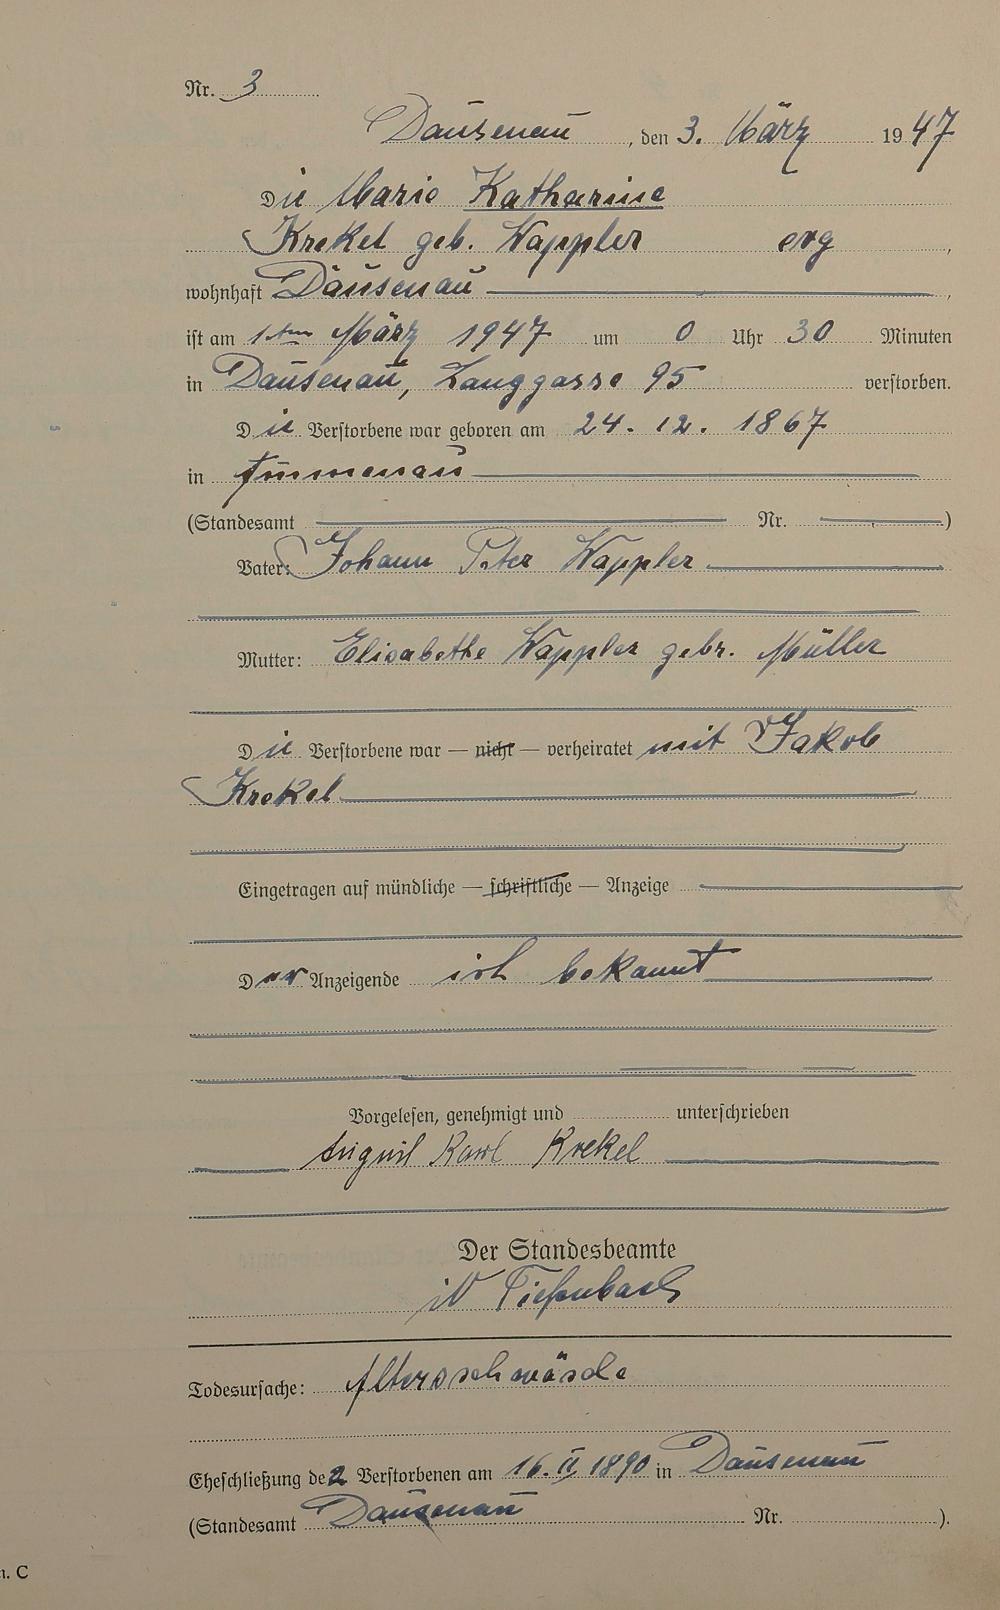 Nr. 3
Dausenau, den 3. März 1947
Die Marie Katharine
Krekel geb. Wappler evg,
wohnhaft Dausenau,
ist am 1ten März 1947 um 0 Uhr 30 Minuten
in Dausenau, Langgasse 95 verstorben.
Die Verstorbene war geboren am 24. 12. 1867
in
(Standesamt Nr. )
Vater: Johann Peter Wappler
Mutter: Elisabethe Wappler gebr. Müller
Die Verstorbene war — nicht — verheiratet mit Jakob
Krekel
Eingetragen auf mündliche — schriftliche — Anzeige
Der Anzeigende ist bekannt
Vorgelesen, genehmigt und unterschrieben
August Karl Krekel
Der Standesbeamte
iV Tiefenbach
Todesursache: Altersschwäsche
Eheschließung der Verstorbenen am 16. II. 1890 in Dausenau
(Standesamt Dausenau Nr. ).
C